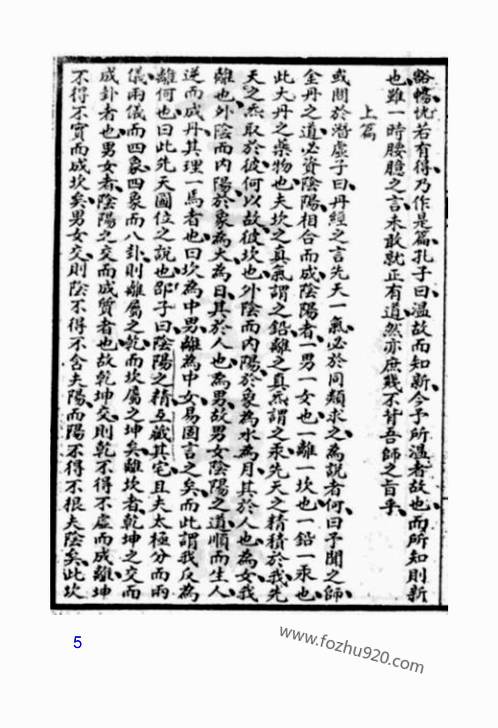 豁暢恍若有得乃作是篇孔子曰溫故而知新今予所溫者故也而所知則新
也雖一時腰臆之言未敢就正有道然亦庶幾不背吾師之旨乎
上篇
或問於潛虛子曰丹經之言先天一氣必於同類求之為說者何曰予聞之師
金丹之道必資陰陽相合而成陰陽者一男一女也一離一坎也一鉛一汞也
此大丹之藥物也夫坎之真氣謂之鉛離之真氣謂之汞先天之精積於我先
天之炁取於彼何以故彼坎也外陰而內陽於象為水為月其於人也為女我
離也外陰而內陽於象為火為日其於人也為男故男女陰陽之道順而生人
逆而成丹其理一焉者也曰坎為中男離為中女易固言之矣而此謂我反為
離何也曰此先天圖位之說也邵子曰陰陽之精互藏其宅且夫太極分而兩
儀兩儀而四象四象而八卦則離屬之乾而坎屬之坤矣離坎者乾坤之交而
成卦者也男女者陰陽之交而成質者也故乾坤交則乾不得不虛而成離坤
不得不實而成坎矣男女交則陰不得不含夫陽而陽不得不根夫陰矣此坎
5
www.fozhu920.com